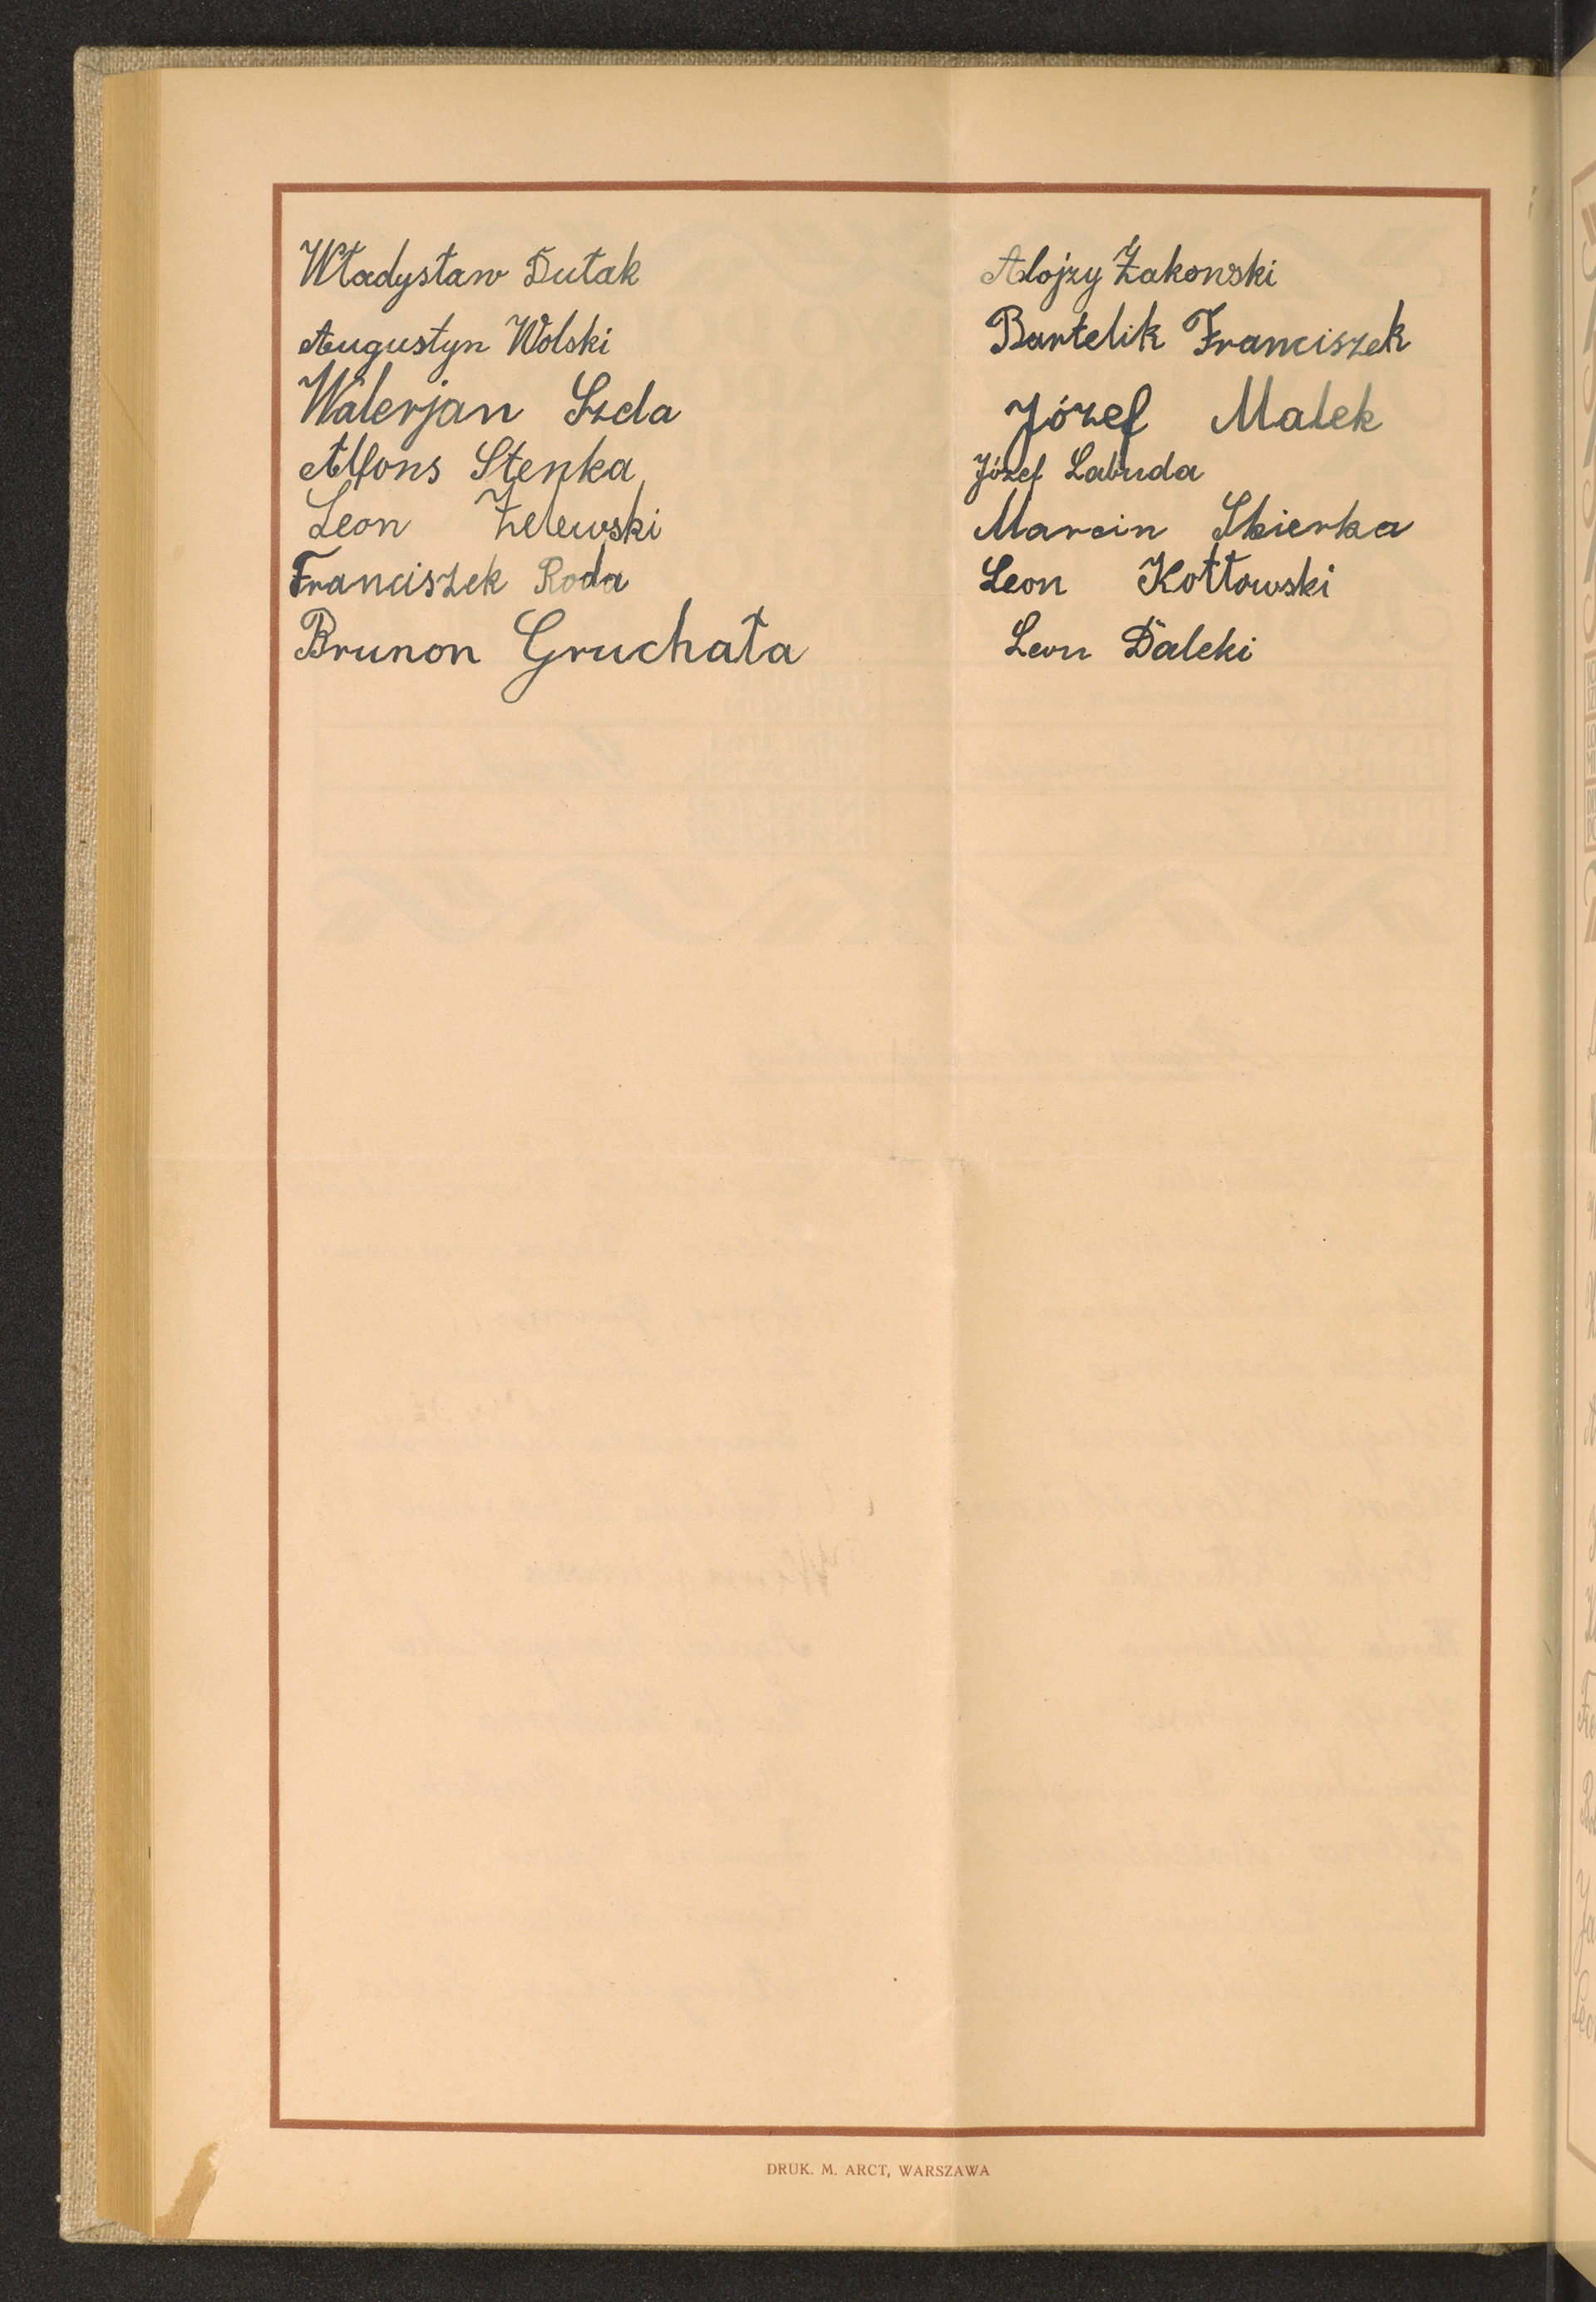 Władysław Dułak
Augustyn Wolski
Walerjan Szda
Alfons Stenka
Leon Żelewski
Franciszek Roda
Brunon Gruchała
Alojzy Żakowski
Bartelik Franciszek
Józef Malek
Józef Labuda
Marcin Skierka
Leon Kottowski
Leon Daleki
DRUK. M. ARCT, WARSZAWA